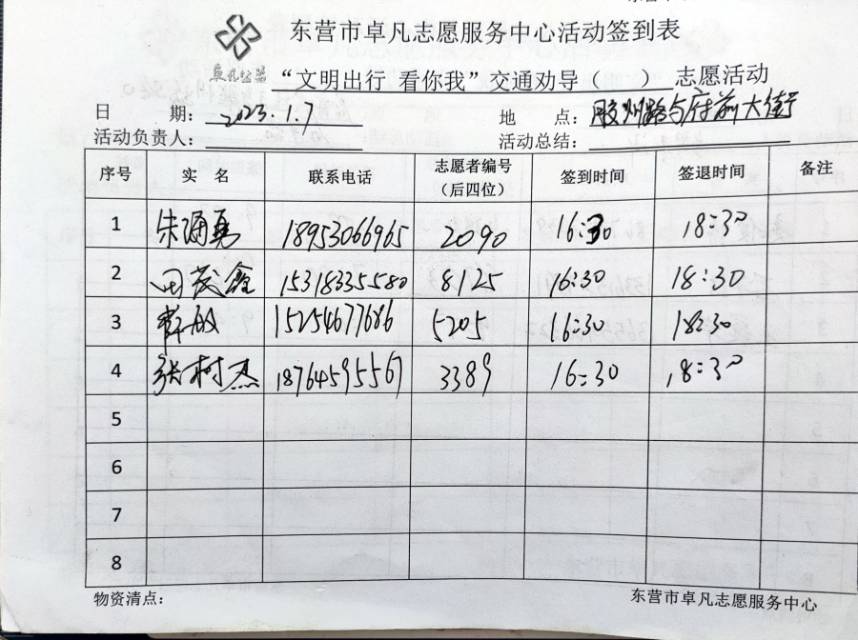 东营市卓凡志愿服务中心活动签到表
卓凡公益
“文明出行 看你我”交通劝导（ ） 志愿活动
日 期：2023.1.7 地 点：胶州路与府前大街
活动负责人： 活动总结：
序号 实 名 联系电话 志愿者编号（后四位） 签到时间 签退时间 备注
1 朱涌勇 18953066965 2090 16:30 18:30
2 田茂鑫 15318335580 8125 16:30 18:30
3 15254677686 5205 16:30 18:30
4 张树杰 18764595567 3389 16:30 18:30
5
6
7
8
物资清点： 东营市卓凡志愿服务中心